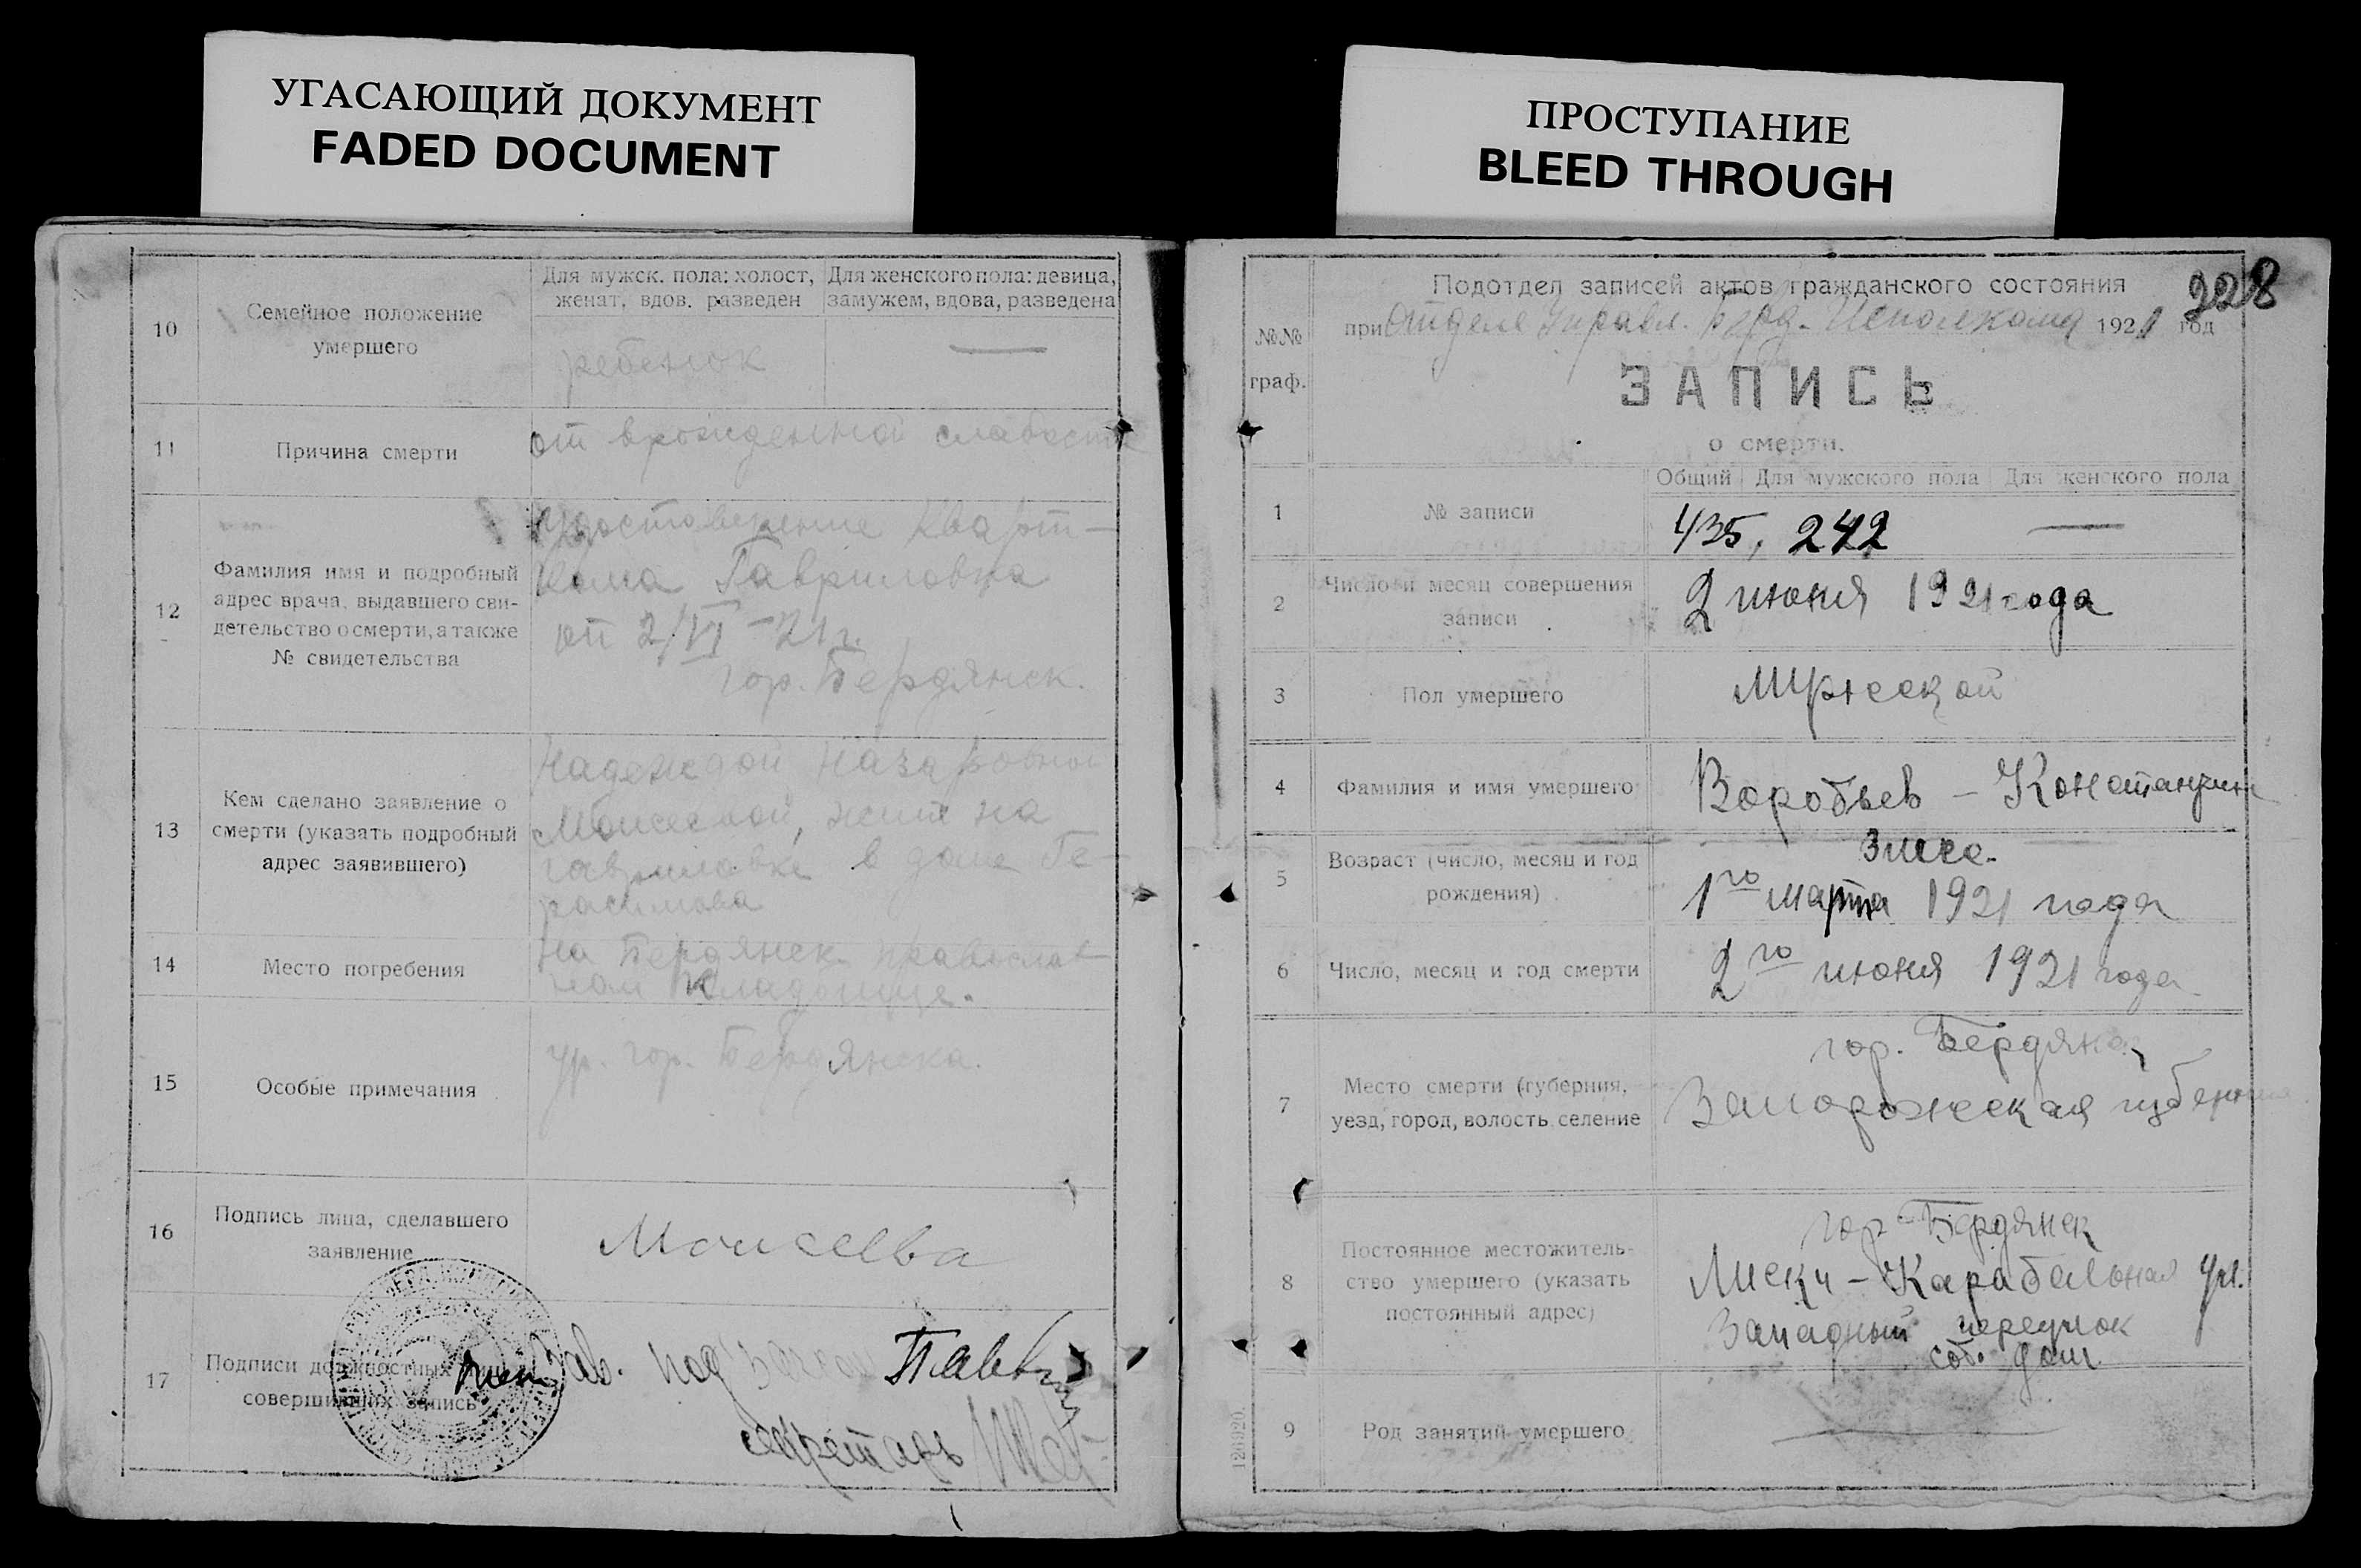 УГАСАЮЩИЙ ДОКУМЕНТ
FADED DOCUMENT
ПРОСТУПАНИЕ
BLEED THROUGH
10
Семейное положение
умершего
Для мужск. пола: холост,
женат, вдов. разведен
Для женского пола: девица,
замужем, вдова, разведена
ребенок
—
11
Причина смерти
от врожденной слабости
12
Фамилия имя и подробный
адрес врача, выдавшего сви-
детельство о смерти, а также
№ свидетельства
Удостоверение Кварт-
кома Гавриловка
от 2/VI-21 г.
гор. Бердянск.
13
Кем сделано заявление о
смерти (указать подробный
адрес заявившего)
Надеждой Назаровной
Моисеевой, жит на
гавриловке в доме Ге-
расимова
14
Место погребения
на Бердянск. православ
ном Кладбище.
15
Особые примечания
ур. гор. Бердянска.
16
Подпись лица, сделавшего
заявление
Моисеева
17
Подписи должностных лиц
совершивших запись
Зав. под
секретарь
Подотдел записей актов гражданского состояния
228
при Отделе Управл. Берд. Исполкома 1921 год
№№
граф.
ЗАПИСЬ
о смерти.
1
№ записи
Общий
Для мужского пола
Для женского пола
435, 242 —
2
Число и месяц совершения
записи
2 июня 1921 года
3
Пол умершего
Мужской
4
Фамилия и имя умершего
Воробьев - Константин
5
Возраст (число, месяц и год
рождения)
3 мес.
1го марта 1921 года
6
Число, месяц и год смерти
2го июня 1921 года
7
Место смерти (губерния,
уезд, город, волость селение
гор. Бердянск
Запорожская губерния
8
Постоянное местожитель-
ство умершего (указать
постоянный адрес)
гор Бердянск
Лиски - Карабельная ул.
Западный переулок
соб. дом.
9
Род занятий умершего
126920.